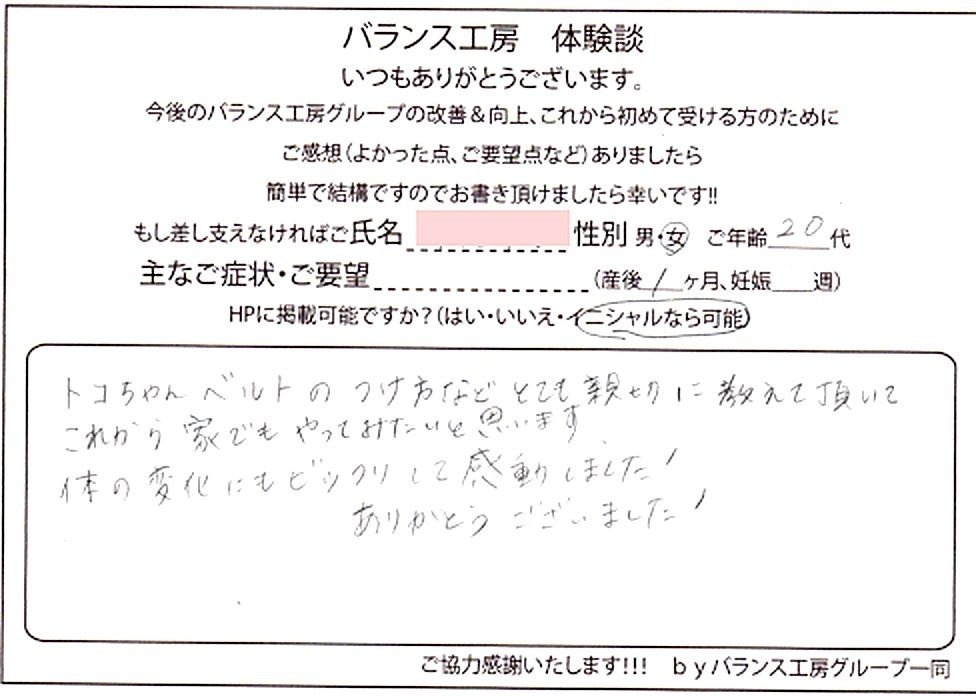 バランス工房　体験談
いつもありがとうございます。
今後のバランス工房グループの改善＆向上、これから初めて受ける方のために
ご感想（よかった点、ご要望点など）ありましたら
簡単で結構ですのでお書き頂けましたら幸いです!!
もし差し支えなければご氏名 性別 男・女 ご年齢 20 代
主なご症状・ご要望 （産後 1 ヶ月、妊娠 週）
HPに掲載可能ですか？（はい・いいえ・イニシャルなら可能）
トコちゃんベルトの つけ方など とても 親切に 教えて頂いて
これから 家でも やってみたいと思います
体の変化にもビックリして感動しました!
ありがとうございました!
ご協力感謝いたします!!!　byバランス工房グループ一同